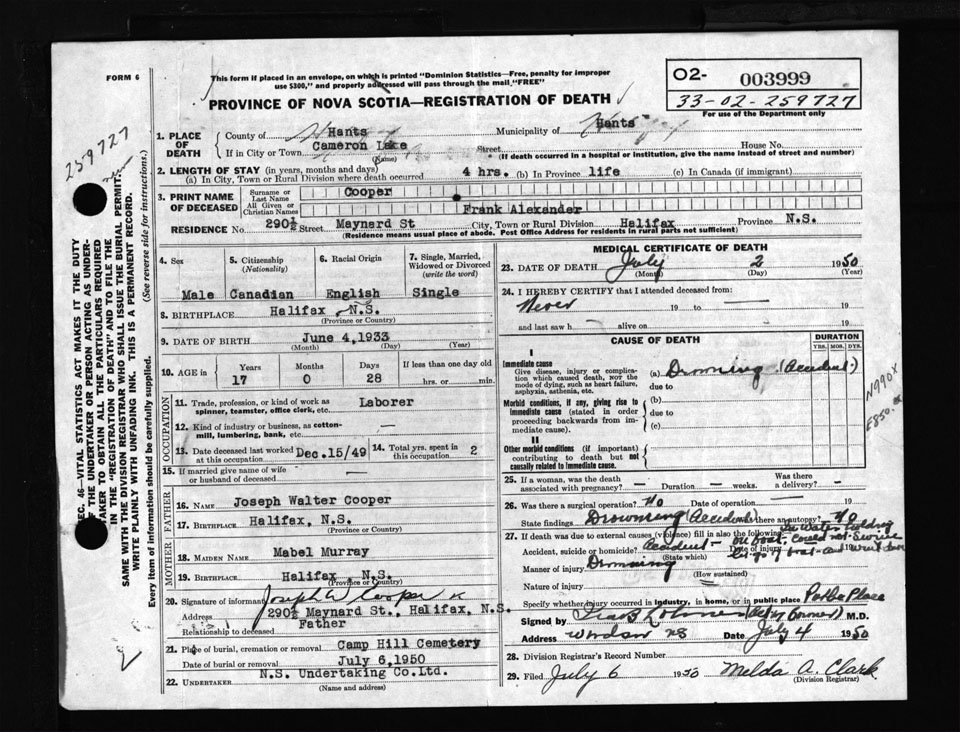 FORM 6
This form if placed in an envelope, on which is printed "Dominion Statistics—Free, penalty for improper
use $300," and properly addressed will pass through the mail "FREE"
PROVINCE OF NOVA SCOTIA—REGISTRATION OF DEATH
02- 003999
33-02-259727
For use of the Department only
259727
SEC. 46—VITAL STATISTICS ACT MAKES IT THE DUTY
OF THE UNDERTAKER OR PERSON ACTING AS UNDER-
TAKER TO OBTAIN ALL THE PARTICULARS REQUIRED
IN THE "REGISTRATION OF DEATH" AND TO FILE THE
SAME WITH THE DIVISION REGISTRAR WHO SHALL ISSUE THE BURIAL PERMIT.
WRITE PLAINLY WITH UNFADING INK. THIS IS A PERMANENT RECORD.
Every item of information should be carefully supplied. (See reverse side for instructions.)
1. PLACE OF DEATH
County of Hants Municipality of Hants
If in City or Town Cameron Lake Street House No.
(Name) (If death occurred in a hospital or institution, give the name instead of street and number)
2. LENGTH OF STAY (in years, months and days)
(a) In City, Town or Rural Division where death occurred 4 hrs. (b) In Province life (c) In Canada (if immigrant)
3. PRINT NAME OF DECEASED
Surname or Last Name Cooper
All Given or Christian Names Frank Alexander
RESIDENCE No. 290½ Street Maynard St City, Town or Rural Division Halifax Province N.S.
(Residence means usual place of abode. Post Office Address for residents in rural parts not sufficient)
4. Sex Male
5. Citizenship (Nationality) Canadian
6. Racial Origin English
7. Single, Married, Widowed or Divorced (write the word) Single
8. BIRTHPLACE Halifax, N.S.
(Province or Country)
9. DATE OF BIRTH June 4, 1933
(Month) (Day) (Year)
10. AGE in Years 17 Months 0 Days 28 If less than one day old hrs. or min.
OCCUPATION
11. Trade, profession, or kind of work as spinner, teamster, office clerk, etc. Laborer
12. Kind of industry or business, as cotton-mill, lumbering, bank, etc. —
13. Date deceased last worked at this occupation Dec.15/49 14. Total yrs. spent in this occupation 2
15. If married give name of wife or husband of deceased
FATHER
16. NAME Joseph Walter Cooper
17. BIRTHPLACE Halifax, N.S.
(Province or Country)
MOTHER
18. MAIDEN NAME Mabel Murray
19. BIRTHPLACE Halifax, N.S.
(Province or Country)
20. Signature of informant Joseph W Cooper
Address 290½ Maynard St., Halifax, N.S.
Relationship to deceased Father
21. Place of burial, cremation or removal Camp Hill Cemetery
Date of burial or removal July 6, 1950
22. UNDERTAKER N.S. Undertaking Co.Ltd.
(Name and address)
MEDICAL CERTIFICATE OF DEATH
23. DATE OF DEATH July 2 1950
(Month) (Day) (Year)
24. I HEREBY CERTIFY that I attended deceased from:
Never 19 to 19
and last saw h alive on 19
CAUSE OF DEATH DURATION
YRS. MOS. DYS.
I
Immediate cause
Give disease, injury or complication which caused death, NOT the mode of dying, such as heart failure, asphyxia, asthenia, etc.
(a) Drowning (Accident)
due to
Morbid conditions, if any, giving rise to immediate cause (stated in order proceeding backwards from immediate cause).
(b)
due to
(c)
II
Other morbid conditions (if important) contributing to death but not causally related to immediate cause.
N990X
E850.
25. If a woman, was the death associated with pregnancy? — Duration — weeks. Was there a delivery? —
26. Was there a surgical operation? No Date of operation — 19
State findings Drowning (Accident) Was there an autopsy? No
27. If death was due to external causes (violence) fill in also the following:
Accident, suicide or homicide? Accident Date of injury 19
(State which)
In water holding on boat, could not swim
let go of boat and went down
Manner of injury Drowning
(How sustained)
Nature of injury
Specify whether injury occurred in industry, in home, or in public place Public Place
Signed by M.D.
Address Windsor NS Date July 4 1950
28. Division Registrar's Record Number
29. Filed July 6 1950 Melda A. Clark
(Division Registrar)